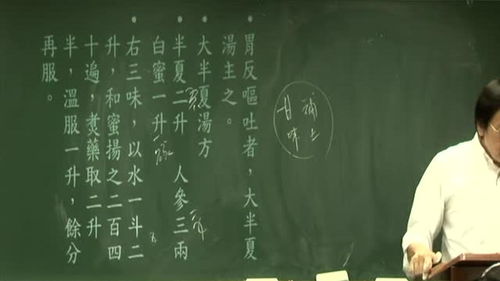 補土
甘味
• 胃反嘔吐者，大半夏
湯主之。
• 大半夏湯方
• 半夏二升　人參三兩
白蜜一升
• 右三味，以水一斗二
升，和蜜揚之二百四
十遍，煮藥取二升
半，溫服一升，餘分
再服。